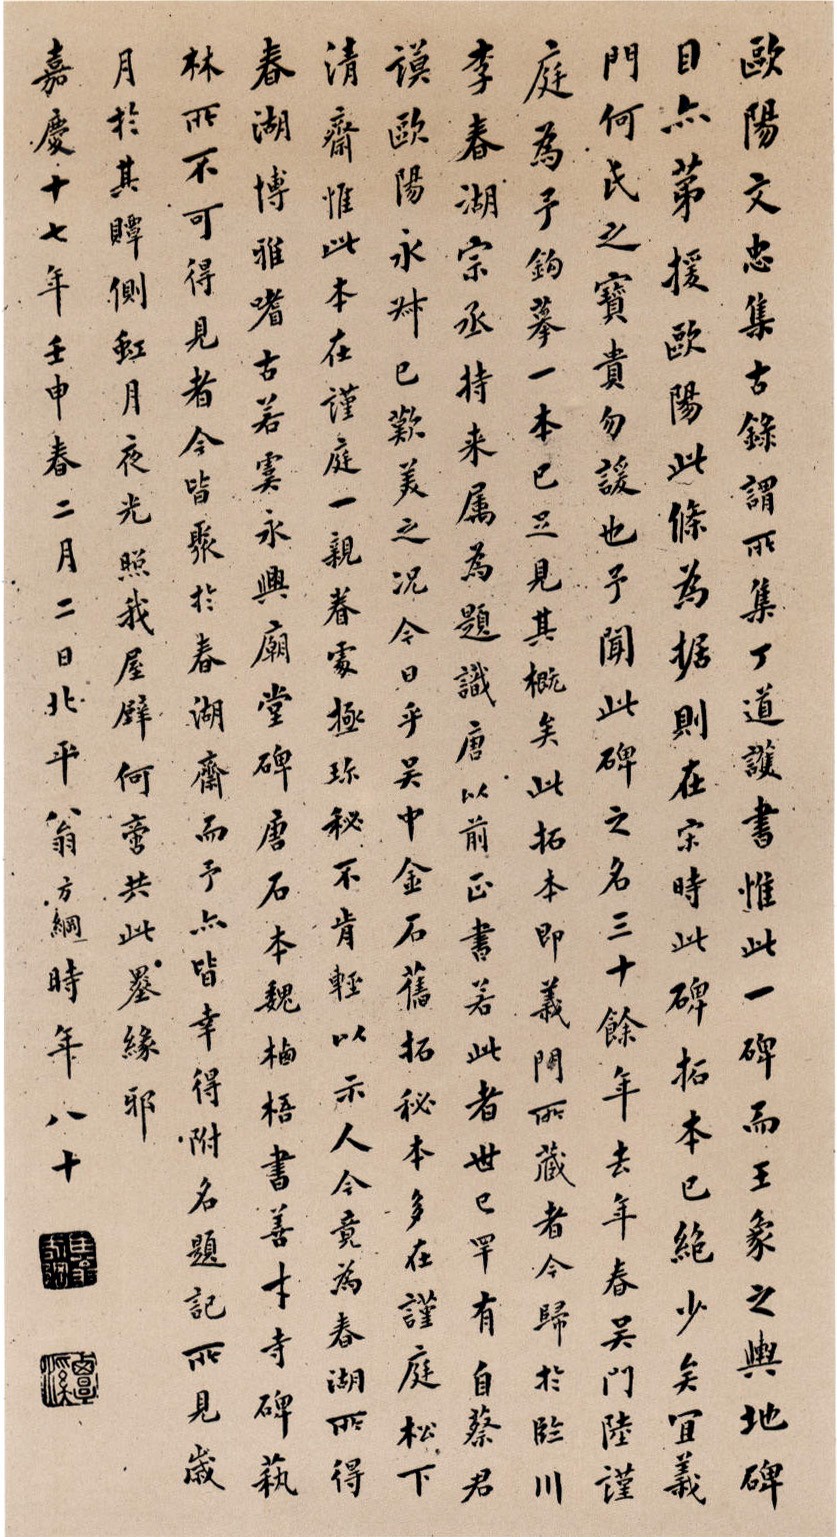 歐陽文忠集古錄謂所集丁道護書惟此一碑而王象之輿地碑
目亦第援歐陽此條為据則在宋時此碑拓本已絶少矣宜義
門何氏之寶貴勿諼也予聞此碑之名三十餘年去年春吴門陸謹
庭為予鉤摹一本已足見其概矣此拓本即義門所藏者今歸於臨川
李春湖宗丞持来属為題識唐以前正書若此者世已罕有自蔡君
謨歐陽永叔已歎美之况今日乎吴中金石舊拓秘本多在謹庭松下
清齋惟此本在謹庭一親眷處極珎秘不肯輕以示人今竟為春湖所得
春湖博雅嗜古若虞永興廟堂碑唐石本魏栖梧書善才寺碑蓺
林所不可得見者今皆聚於春湖齋而予亦皆幸得附名題記所見歲
月於其贉側虹月夜光照我屋壁何啻共此墨緣邪
嘉慶十七年壬申春二月二日北平翁方綱時年八十
覃溪